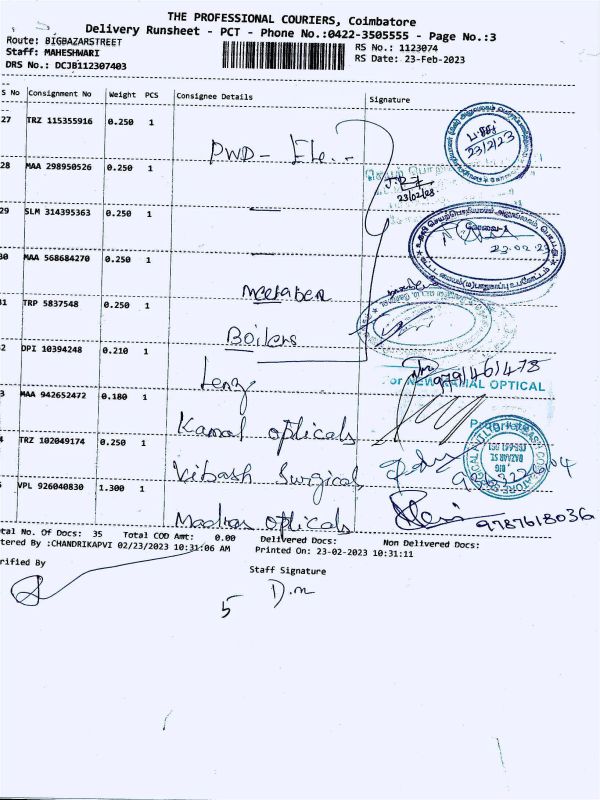 THE PROFESSIONAL COURIERS, Coimbatore
Delivery Runsheet - PCT - Phone No.:0422-3505555 - Page No.:3
Route: BIGBAZARSTREET
RS No.: 1123074
Staff: MAHESHWARI
RS Date: 23-Feb-2023
DRS No.: DCJB112307403
S No Consignment No Weight PCS Consignee Details Signature
27 TRZ 115355916 0.250 1
PWD - Ele.
23/2/23
28 MAA 298950526 0.250 1
23/02/23
29 SLM 314395363 0.250 1
23.02.23
30 MAA 568684270 0.250 1
31 TRP 5837548 0.250 1
Boilers
2 DPI 10394248 0.210 1
Lenz
9791461478
OPTICAL
3 MAA 942652472 0.180 1
Kamal opticals
4 TRZ 102049174 0.250 1
BAZAAR ST.
Vibash Surgical
5 VPL 926040830 1.300 1
Madras opticals
9787618036
otal No. Of Docs: 35 Total COD Amt: 0.00 Delivered Docs: Non Delivered Docs:
tered By :CHANDRIKAPVI 02/23/2023 10:31:06 AM Printed On: 23-02-2023 10:31:11
rified By
Staff Signature
D.m
5